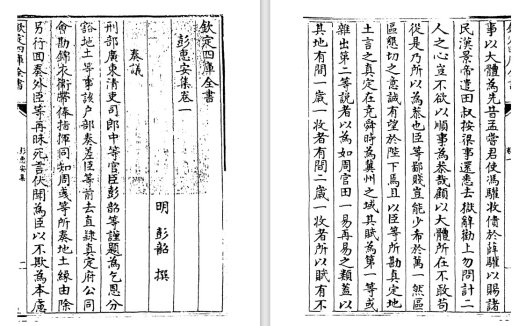 欽定四庫全書
彭惠安集卷一
明 彭韶 撰
奏議
刑部廣東清吏司郎中等官臣彭韶等謹題為乞恩分
豁地土等事該户部奏差臣等前去直隸真定府公同
會勘錦衣衛帶俸指揮同知周彧等所奏地土緣由除
另行回奏外臣等再昧死言伏聞為臣以不欺為本慮
彭惠安集
事以大體為先昔孟嘗君使馮驩收債於薛驩以賜諸
民漢景帝遣田叔按梁事還悉去獄辭勸上勿問計二
人之心豈不欲以順事為恭哉顧以大體所在不敢苟
從是乃所以為恭也臣等鄙賤豈能少希於萬一然區
區懇切之意誠有望於陛下焉且以臣等所勘真定地
土言之真定在堯舜時為冀州之域其賦為第一等或
雜出第二等說者以為如周官田一易再易之類蓋以
其地有間一歲一收者有間二歲一收者所以賦有不